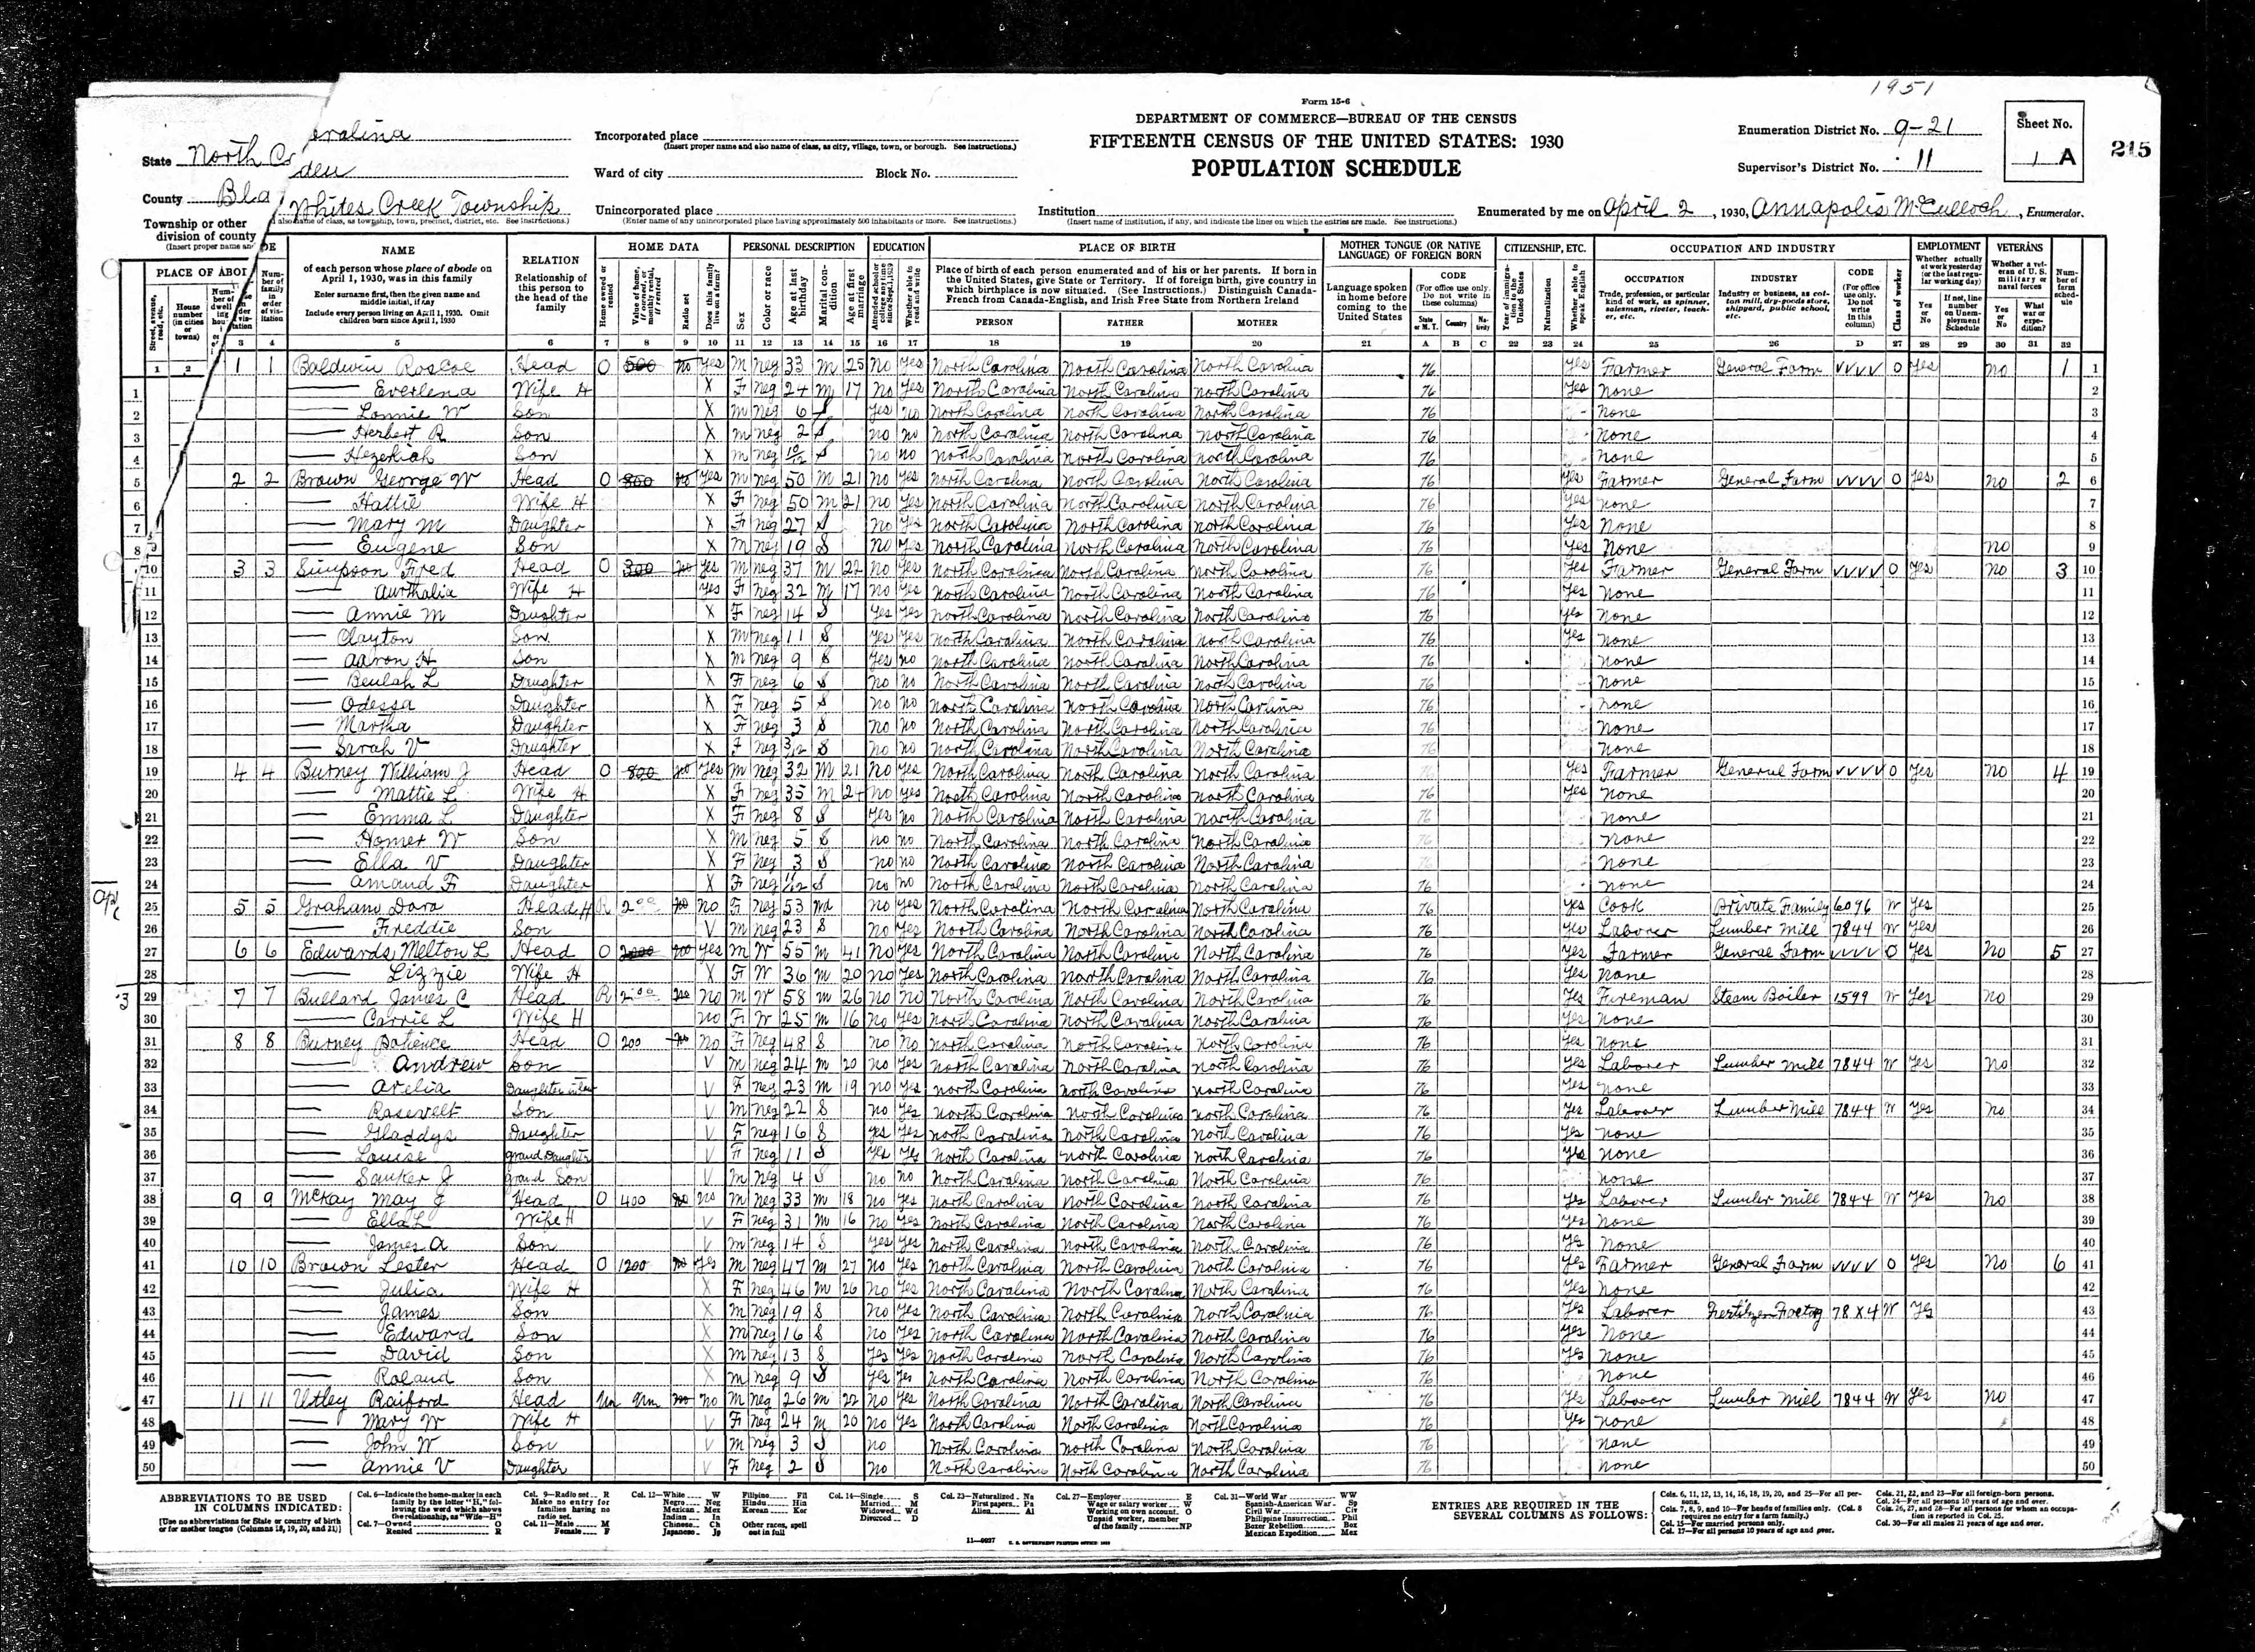 1951
Form 15-6
DEPARTMENT OF COMMERCE—BUREAU OF THE CENSUS
FIFTEENTH CENSUS OF THE UNITED STATES: 1930
POPULATION SCHEDULE
State North Carolina
Incorporated place
(Insert proper name and also name of class, as city, village, town, or borough. See instructions.)
Enumeration District No. 9-21
Sheet No.
1 A
215
County Bladen
Ward of city Block No.
Supervisor's District No. 11
Township or other division of county Whites Creek Township
Unincorporated place
(Enter name of any unincorporated place having approximately 500 inhabitants or more. See instructions.)
Institution
(Insert name of institution, if any, and indicate the lines on which the entries are made. See instructions.)
Enumerated by me on April 2, 1930, Annapolis McCulloch, Enumerator.
PLACE OF ABODE NAME RELATION HOME DATA PERSONAL DESCRIPTION EDUCATION PLACE OF BIRTH MOTHER TONGUE (OR NATIVE LANGUAGE) OF FOREIGN BORN CITIZENSHIP, ETC. OCCUPATION AND INDUSTRY EMPLOYMENT VETERANS
of each person whose place of abode on April 1, 1930, was in this family
Enter surname first, then the given name and middle initial, if any
Include every person living on April 1, 1930. Omit children born since April 1, 1930
Relationship of this person to the head of the family
Place of birth of each person enumerated and of his or her parents. If born in the United States, give State or Territory. If of foreign birth, give country in which birthplace is now situated. (See Instructions.) Distinguish Canada-French from Canada-English, and Irish Free State from Northern Ireland
PERSON FATHER MOTHER
1 1 Baldwin Roscoe Head O 500 no Yes M Neg 33 M 25 No Yes North Carolina North Carolina North Carolina 76 Yes Farmer General Farm VVVV O Yes no 1 1
Everlena Wife H X F Neg 24 M 17 No Yes North Carolina North Carolina North Carolina 76 Yes None 2
Lonnie W Son X M Neg 6 S Yes no North Carolina North Carolina North Carolina 76 None 3
Herbert R Son X M Neg 2 S no no North Carolina North Carolina North Carolina 76 None 4
Hezekiah Son X M Neg 10/12 S No no North Carolina North Carolina North Carolina 76 None 5
2 2 Brown George W Head O 800 no Yes M Neg 50 M 21 No Yes North Carolina North Carolina North Carolina 76 Yes Farmer General Farm VVVV O Yes no 2 6
Hattie Wife H X F Neg 50 M 21 No Yes North Carolina North Carolina North Carolina 76 Yes None 7
Mary M Daughter X F Neg 27 S No Yes North Carolina North Carolina North Carolina 76 Yes None 8
Eugene Son X M Neg 19 S No Yes North Carolina North Carolina North Carolina 76 Yes None no 9
3 3 Simpson Fred Head O 300 no Yes M Neg 37 M 22 No Yes North Carolina North Carolina North Carolina 76 Yes Farmer General Farm VVVV O Yes no 3 10
Aurthalia Wife H Yes F Neg 32 M 17 No Yes North Carolina North Carolina North Carolina 76 Yes None 11
Annie M Daughter X F Neg 14 S Yes Yes North Carolina North Carolina North Carolina 76 Yes None 12
Clayton Son X M Neg 11 S Yes Yes North Carolina North Carolina North Carolina 76 Yes None 13
Aaron H Son X M Neg 9 S Yes no North Carolina North Carolina North Carolina 76 None 14
Beulah L Daughter X F Neg 6 S No No North Carolina North Carolina North Carolina 76 None 15
Odessa Daughter X F Neg 5 S No no North Carolina North Carolina North Carlina 76 None 16
Martha Daughter X F Neg 3 S No No North Carolina North Carolina North Carolina 76 None 17
Sarah V Daughter X F Neg 3/12 S No no North Carolina North Carolina North Carolina 76 None 18
4 4 Burney William J Head O 800 no Yes M Neg 32 M 21 No Yes North Carolina North Carolina North Carolina 76 Yes Farmer General Farm VVVV O Yes No 4 19
Mattie L Wife H X F Neg 35 M 24 No Yes North Carolina North Carolina North Carolina 76 Yes None 20
Emma L Daughter X F Neg 8 S Yes No North Carolina North Carolina North Carolina 76 None 21
Homer W Son X M Neg 5 S No no North Carolina North Carolina North Carolina 76 None 22
Ella V Daughter X F Neg 3 S no no North Carolina North Carolina North Carolina 76 None 23
Amaud F Daughter X F Neg 11/12 S No no North Carolina North Carolina North Carolina 76 None 24
5 5 Graham Dora Head H R 2.00 no No F Neg 53 Wd No Yes North Carolina North Carolina North Carolina 76 Yes Cook Private Family 6096 W Yes 25
Freddie Son V M Neg 23 S No Yes North Carolina North Carolina North Carolina 76 Yes Laborer Lumber Mill 7844 W Yes 26
6 6 Edwards Melton L Head O 2000 no Yes M W 55 M 41 No Yes North Carolina North Carolina North Carolina 76 Yes Farmer General Farm VVVV O Yes No 5 27
Lizzie Wife H X F W 36 M 20 no Yes North Carolina North Carolina North Carolina 76 Yes None 28
7 7 Bullard James C Head R 2.00 no No M W 58 M 26 No No North Carolina North Carolina North Carolina 76 Yes Fireman Steam Boiler 1599 W Yes no 29
Carrie L Wife H no F W 25 M 16 No Yes North Carolina North Carolina North Carolina 76 Yes None 30
8 8 Burney Patience Head O 200 no No F Neg 48 S No No North Carolina North Carolina North Carolina 76 Yes None 31
Andrew Son V M Neg 24 M 20 no Yes North Carolina North Carolina North Carolina 76 Yes Laborer Lumber Mill 7844 W Yes No 32
Arelia Daughter in law V F Neg 23 M 19 no Yes North Carolina North Carolina North Carolina 76 Yes None 33
Rasevelt Son V M Neg 22 S No Yes North Carolina North Carolina North Carolina 76 Yes Laborer Lumber Mill 7844 W Yes No 34
Gladdys Daughter V F Neg 16 S Yes Yes North Carolina North Carolina North Carolina 76 Yes None 35
Louise Grand Daughter V F Neg 11 S Yes Yes North Carolina North Carolina North Carolina 76 Yes None 36
Sauker J Grand Son V M Neg 4 S No no North Carolina North Carolina North Carolina 76 None 37
9 9 McKay May J Head O 400 no no M Neg 33 M 18 No Yes North Carolina North Carolina North Carolina 76 Yes Laborer Lumber Mill 7844 W Yes No 38
Ella L Wife H V F Neg 31 M 16 No Yes North Carolina North Carolina North Carolina 76 Yes None 39
James A Son V M Neg 14 S Yes Yes North Carolina North Carolina North Carolina 76 Yes None 40
10 10 Brown Lester Head O 1200 no Yes M Neg 47 M 27 No Yes North Carolina North Carolina North Carolina 76 Yes Farmer General Farm VVVV O Yes No 6 41
Julia Wife H X F Neg 46 M 26 No Yes North Carolina North Carolina North Carolina 76 Yes None 42
James Son X M Neg 19 S No Yes North Carolina North Carolina North Carolina 76 Yes Laborer Fertilizer Factory 78X4 W Yes 43
Edward Son X M Neg 16 S No Yes North Carolina North Carolina North Carolina 76 Yes None 44
David Son X M Neg 13 S Yes Yes North Carolina North Carolina North Carolina 76 Yes None 45
Roland Son M Neg 9 S Yes Yes North Carolina North Carolina North Carolina 76 None 46
11 11 Utley Raiford Head Un Un no no M Neg 26 M 22 No Yes North Carolina North Carolina North Carolina 76 Yes Laborer Lumber Mill 7844 W Yes No 47
Mary W Wife H V F Neg 24 M 20 No Yes North Carolina North Carolina North Carolina 76 Yes None 48
John W Son V M Neg 3 S no North Carolina North Carolina North Carolina 76 None 49
Annie V Daughter V F Neg 2 S no North Carolina North Carolina North Carolina 76 None 50
ABBREVIATIONS TO BE USED IN COLUMNS INDICATED:
[Use no abbreviations for State or country of birth or for mother tongue (Columns 18, 19, 20, and 21)]
ENTRIES ARE REQUIRED IN THE SEVERAL COLUMNS AS FOLLOWS:
11—9027 U. S. GOVERNMENT PRINTING OFFICE